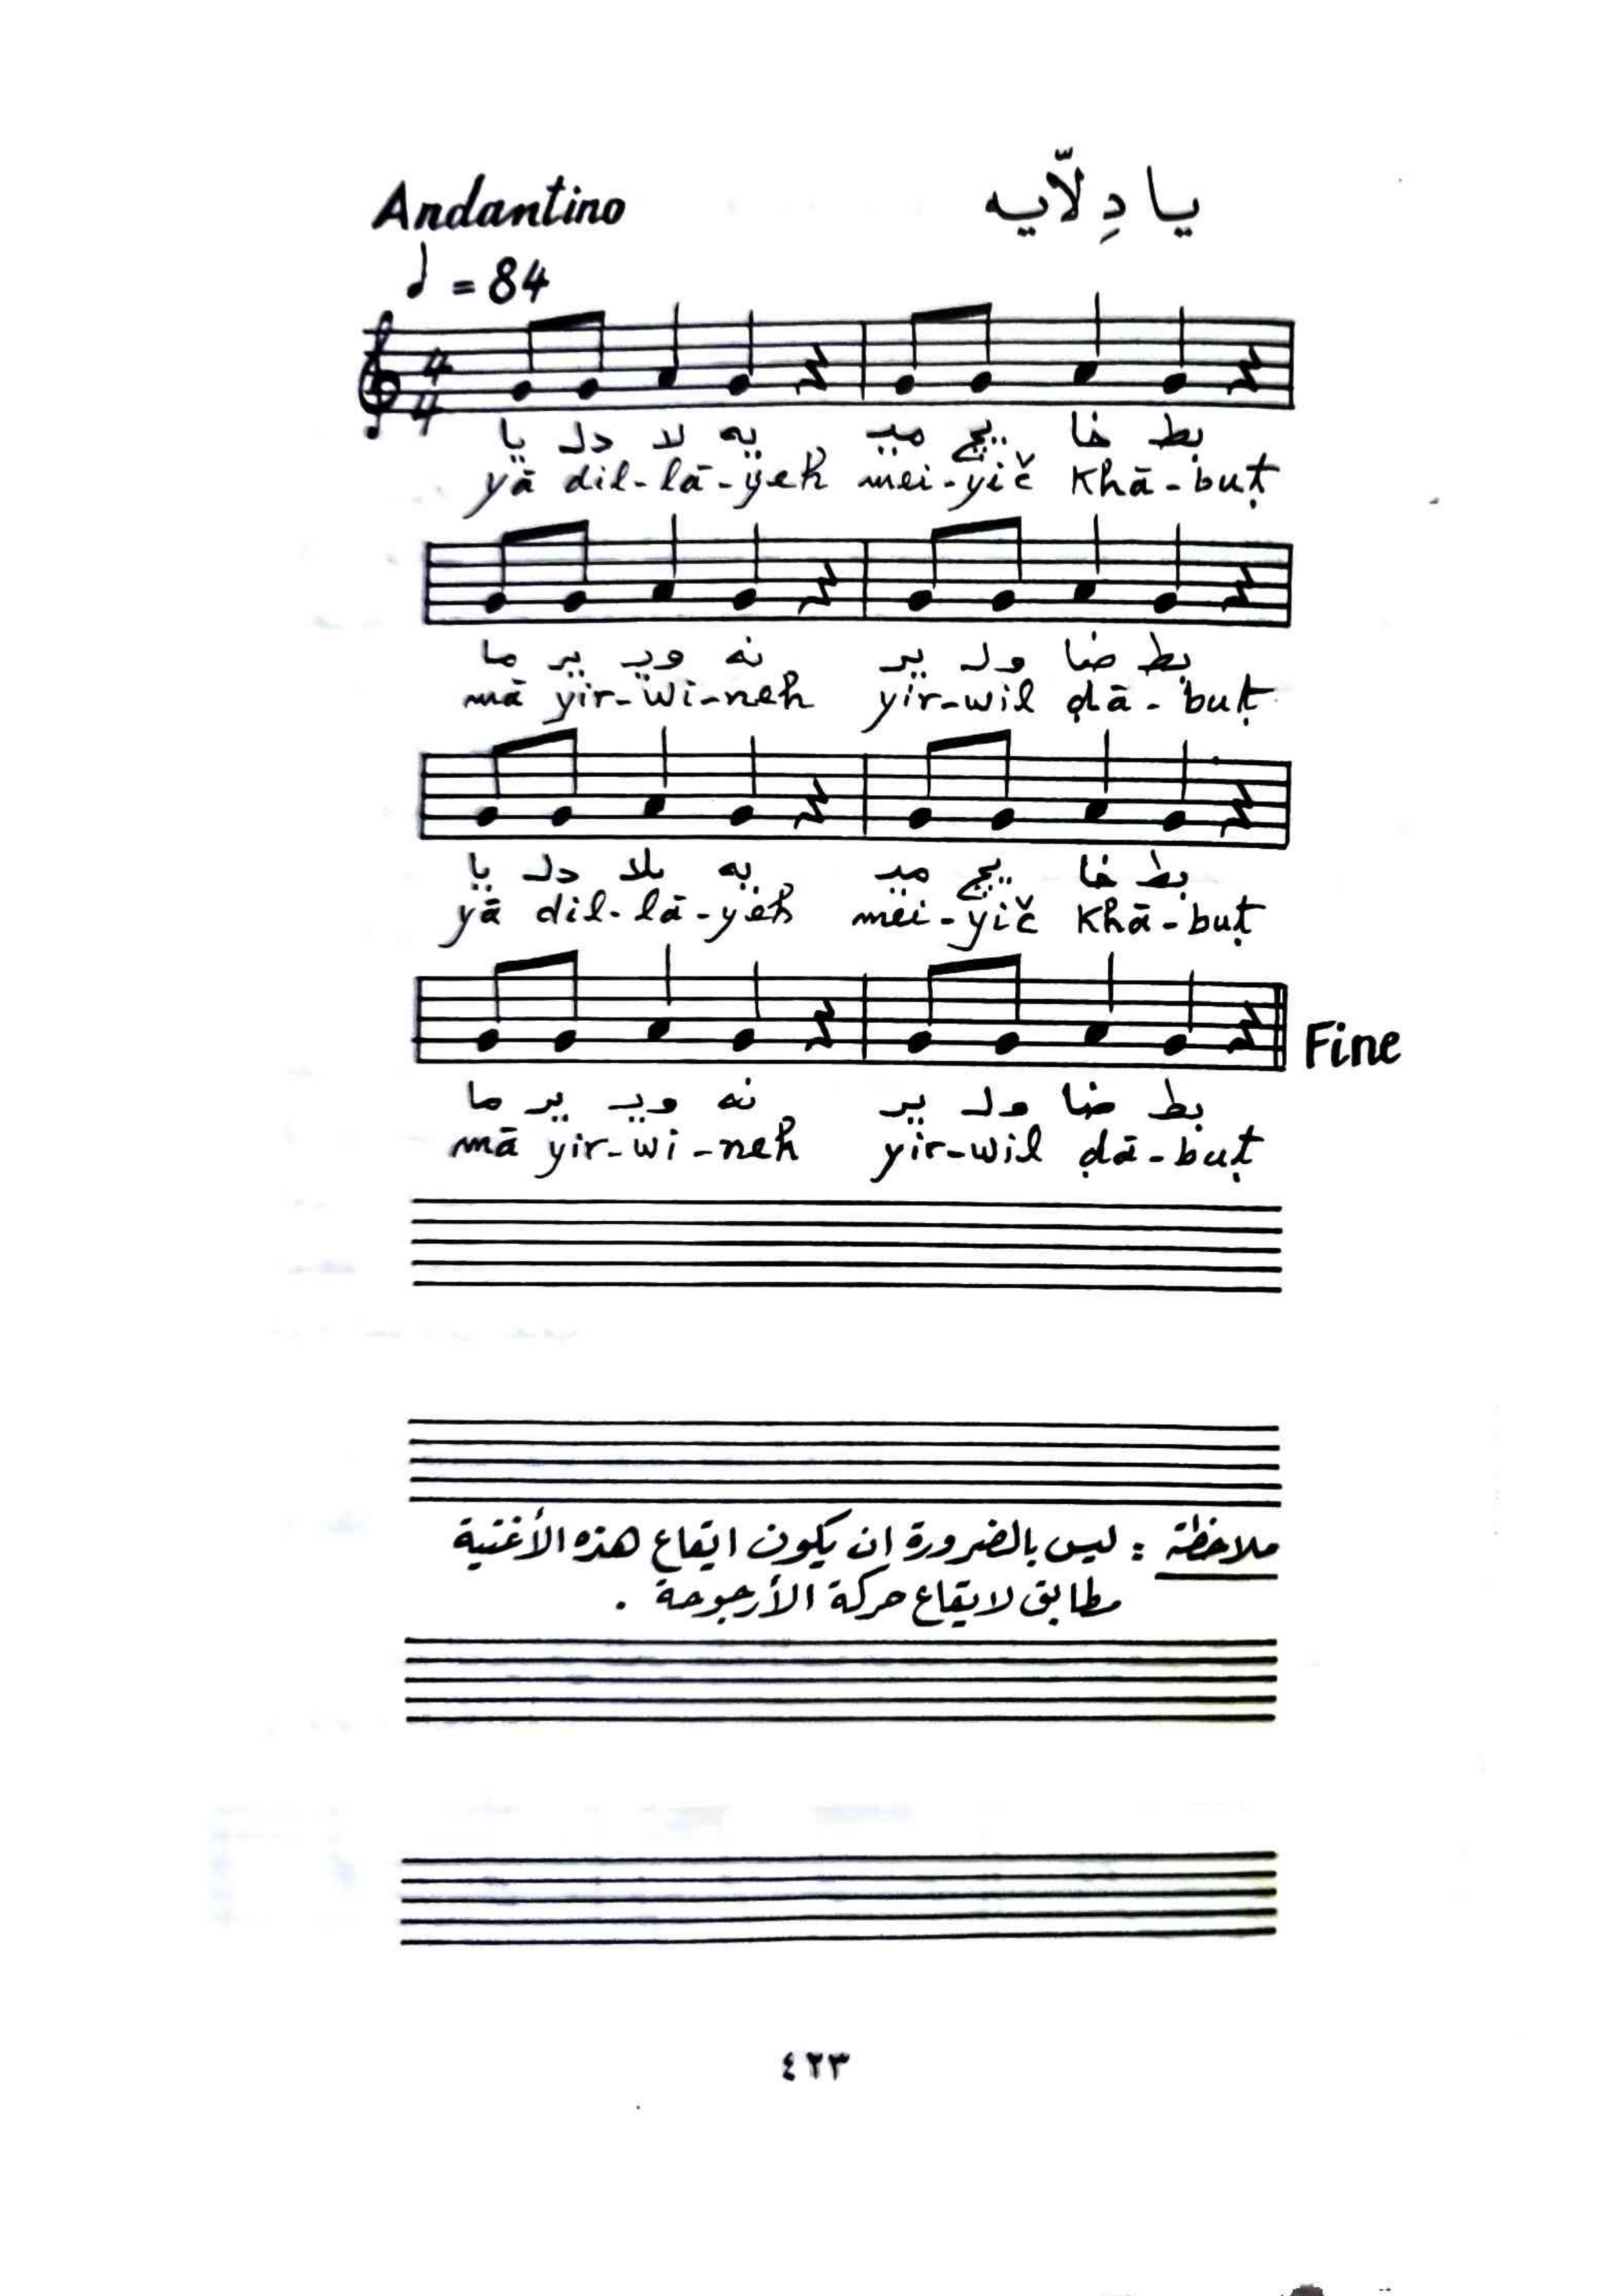 Andantino
يا دِلّايه
♩ = 84
4/4
يا دلـ لا يه ميـ يچ خا بط
yā dil-lā-yeh mei-yič khā-buṭ
ما ير ويـ نه ير ولـ ضا بط
mā yir-wi-neh yir-wil ḍā-buṭ
يا دلـ لا يه ميـ يچ خا بط
yā dil-lā-yeh mei-yič khā-buṭ
Fine
ما ير ويـ نه ير ولـ ضا بط
mā yir-wi-neh yir-wil ḍā-buṭ
ملاحظة : ليس بالضرورة ان يكون ايقاع هذه الأغنية
مطابق لايقاع حركة الأرجوحة .
٤٢٣